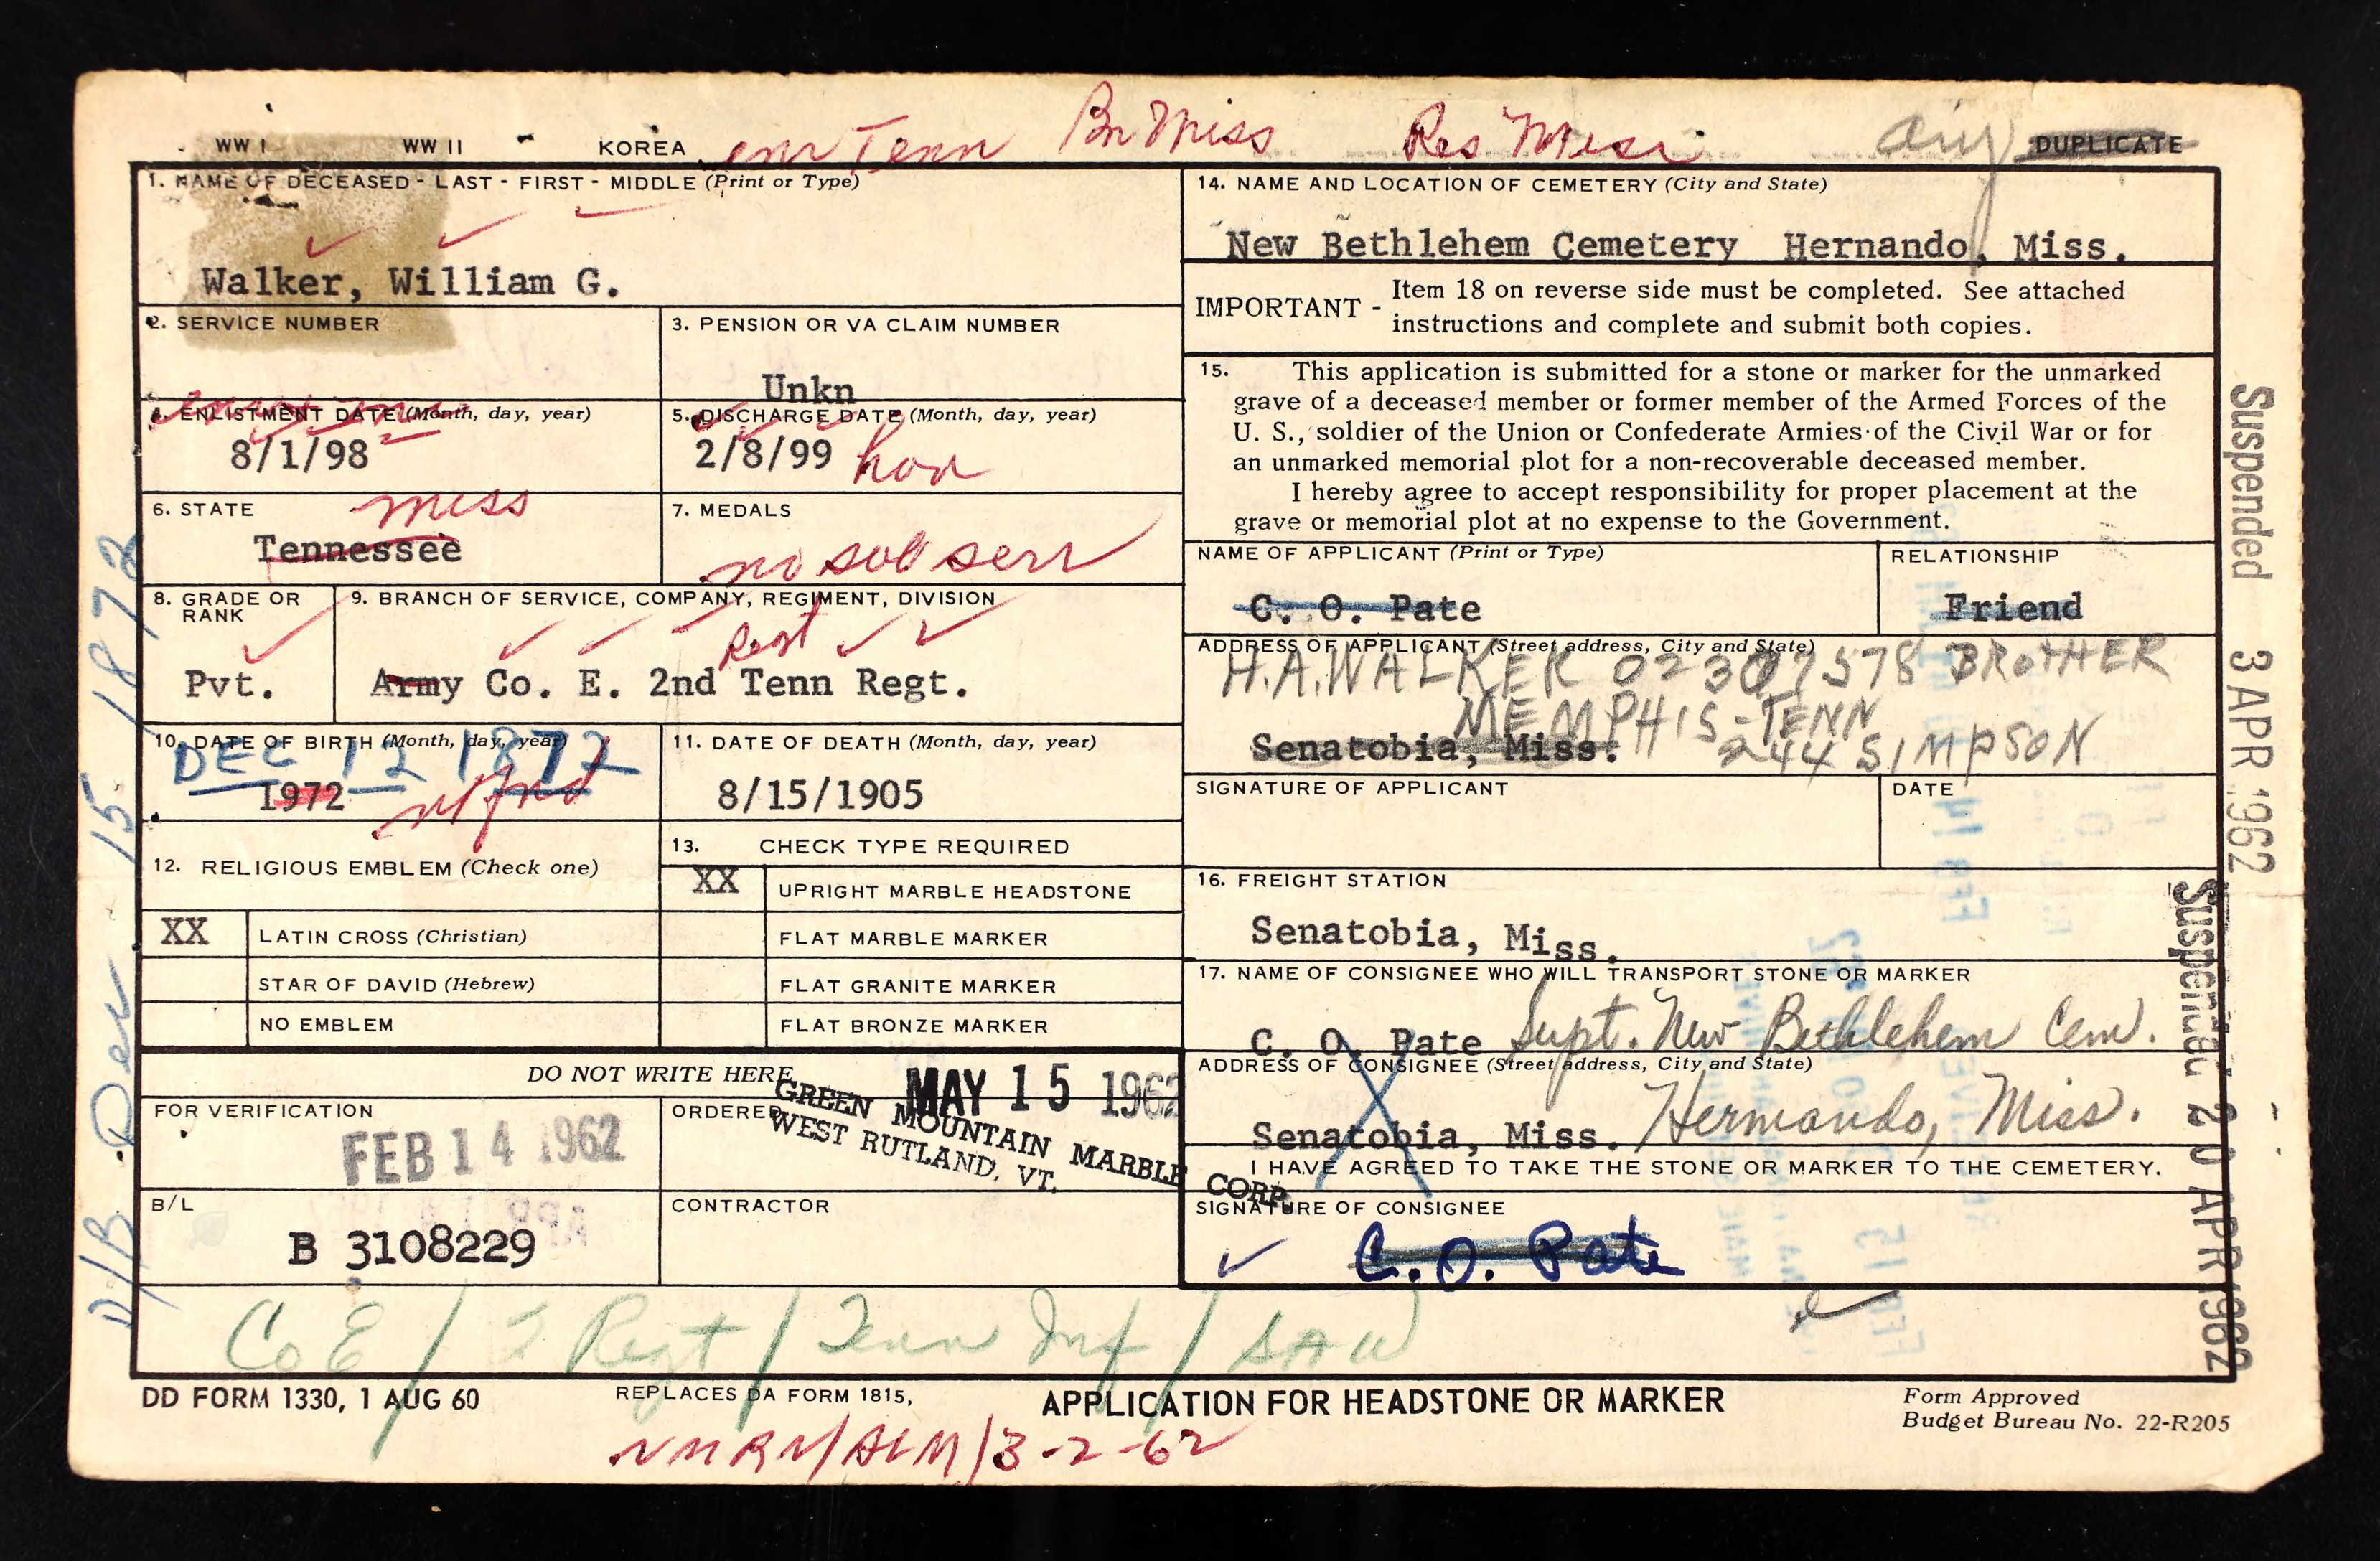 WW I WW II KOREA enr Tenn Bn Miss Res Miss orig DUPLICATE
1. NAME OF DECEASED - LAST - FIRST - MIDDLE (Print or Type)
Walker, William G.
2. SERVICE NUMBER
3. PENSION OR VA CLAIM NUMBER
Unkn
4. ENLISTMENT DATE (Month, day, year)
8/1/98
5. DISCHARGE DATE (Month, day, year)
2/8/99 hon
6. STATE
Miss
Tennessee
7. MEDALS
no sub serv
8. GRADE OR
RANK
Pvt.
9. BRANCH OF SERVICE, COMPANY, REGIMENT, DIVISION
Regt
Army Co. E. 2nd Tenn Regt.
10. DATE OF BIRTH (Month, day, year)
DEC 12 1872
1972
11. DATE OF DEATH (Month, day, year)
8/15/1905
12. RELIGIOUS EMBLEM (Check one)
XX LATIN CROSS (Christian)
STAR OF DAVID (Hebrew)
NO EMBLEM
13. CHECK TYPE REQUIRED
XX UPRIGHT MARBLE HEADSTONE
FLAT MARBLE MARKER
FLAT GRANITE MARKER
FLAT BRONZE MARKER
DO NOT WRITE HERE
FOR VERIFICATION
FEB 14 1962
ORDERED
MAY 15 1962
GREEN MOUNTAIN MARBLE CORP.
WEST RUTLAND, VT.
B/L
B 3108229
CONTRACTOR
14. NAME AND LOCATION OF CEMETERY (City and State)
New Bethlehem Cemetery Hernando, Miss.
IMPORTANT - Item 18 on reverse side must be completed. See attached
instructions and complete and submit both copies.
15. This application is submitted for a stone or marker for the unmarked
grave of a deceased member or former member of the Armed Forces of the
U. S., soldier of the Union or Confederate Armies of the Civil War or for
an unmarked memorial plot for a non-recoverable deceased member.
I hereby agree to accept responsibility for proper placement at the
grave or memorial plot at no expense to the Government.
NAME OF APPLICANT (Print or Type)
C. O. Pate
RELATIONSHIP
Friend
ADDRESS OF APPLICANT (Street address, City and State)
H.A. WALKER 02307578 BROTHER
MEMPHIS - TENN
Senatobia, Miss. 244 SIMPSON
SIGNATURE OF APPLICANT
DATE
16. FREIGHT STATION
Senatobia, Miss.
17. NAME OF CONSIGNEE WHO WILL TRANSPORT STONE OR MARKER
C. O. Pate Supt. New Bethlehem Cem.
ADDRESS OF CONSIGNEE (Street address, City and State)
Senatobia, Miss. Hernando, Miss.
I HAVE AGREED TO TAKE THE STONE OR MARKER TO THE CEMETERY.
SIGNATURE OF CONSIGNEE
C. O. Pate
Co E / 2 Regt / Tenn Inf / SAW
DD FORM 1330, 1 AUG 60 REPLACES DA FORM 1815, APPLICATION FOR HEADSTONE OR MARKER
Form Approved
Budget Bureau No. 22-R205
3-2-62
D/B Dec 15 1872
Suspended 3 APR 1962
Suspended 20 APR 1962